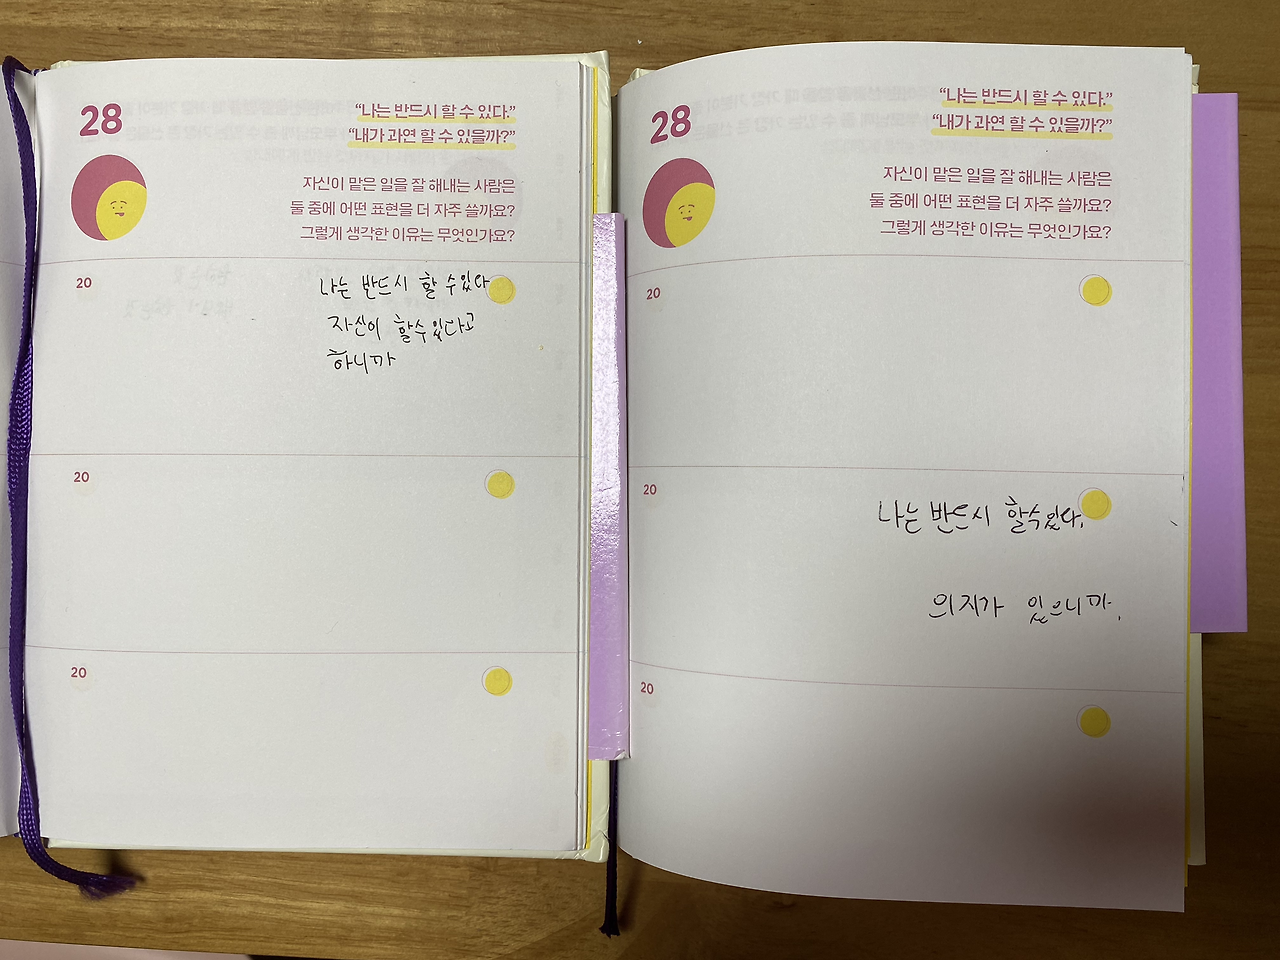 28
“나는 반드시 할 수 있다.”
“내가 과연 할 수 있을까?”
자신이 맡은 일을 잘 해내는 사람은
둘 중에 어떤 표현을 더 자주 쓸까요?
그렇게 생각한 이유는 무엇인가요?
20
나는 반드시 할 수있다
자신이 할수있다고
하니까
20
20
28
“나는 반드시 할 수 있다.”
“내가 과연 할 수 있을까?”
자신이 맡은 일을 잘 해내는 사람은
둘 중에 어떤 표현을 더 자주 쓸까요?
그렇게 생각한 이유는 무엇인가요?
20
20
나는 반드시 할수있다.
의지가 있으니까.
20